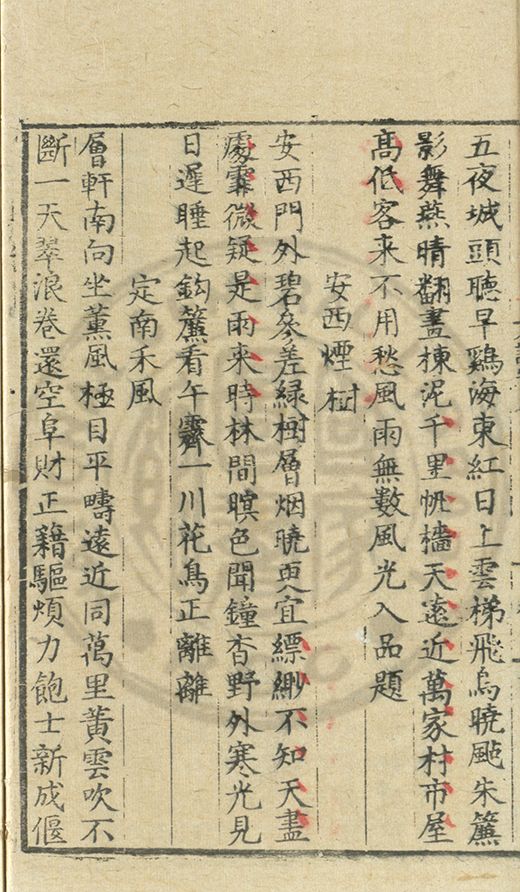 五夜城頭聴早鷄海東紅日上雲梯飛烏曉颭朱簾
影舞燕晴翻畫棟泥千里帆檣天遠近萬家村市屋
髙低客来不用愁風雨無數風光入品題
安西煙樹
安西門外碧參差緑樹層烟曉更宜縹緲不知天盡
處霏微疑是雨来時林間暝色聞鐘杳野外寒光見
日遲睡起鈎簾看午霽一川花鳥正離離
定南禾風
層軒南向坐薫風極目平疇遠近同萬里黄雲吹不
斷一天翠浪卷還空阜財正藉驅煩力飽士新成偃